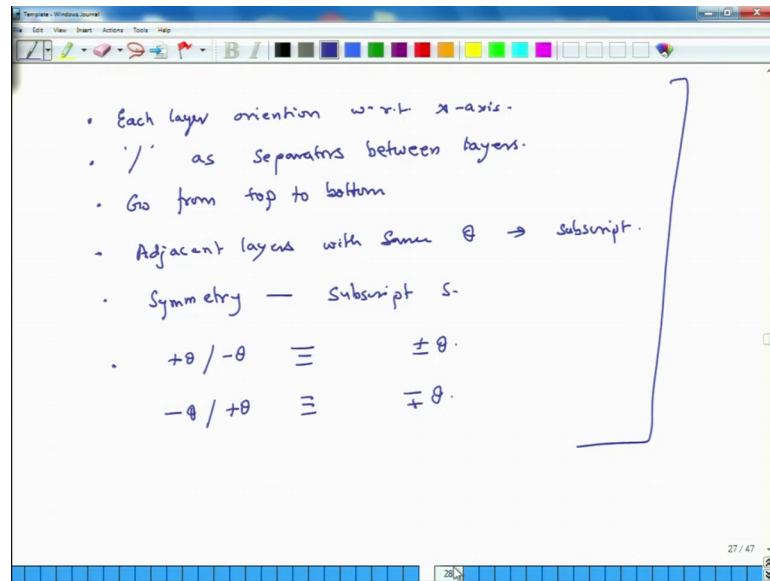 Template - Windows Journal
File Edit View Insert Actions Tools Help
• Each layer oriention w.r.t x-axis.
• '/' as separators between layers.
• Go from top to bottom
• Adjacent layers with same θ → subscript.
• Symmetry — Subscript s.
• +θ / -θ ≡ ± θ.
-θ / +θ ≡ ∓ θ.
27 / 47
28